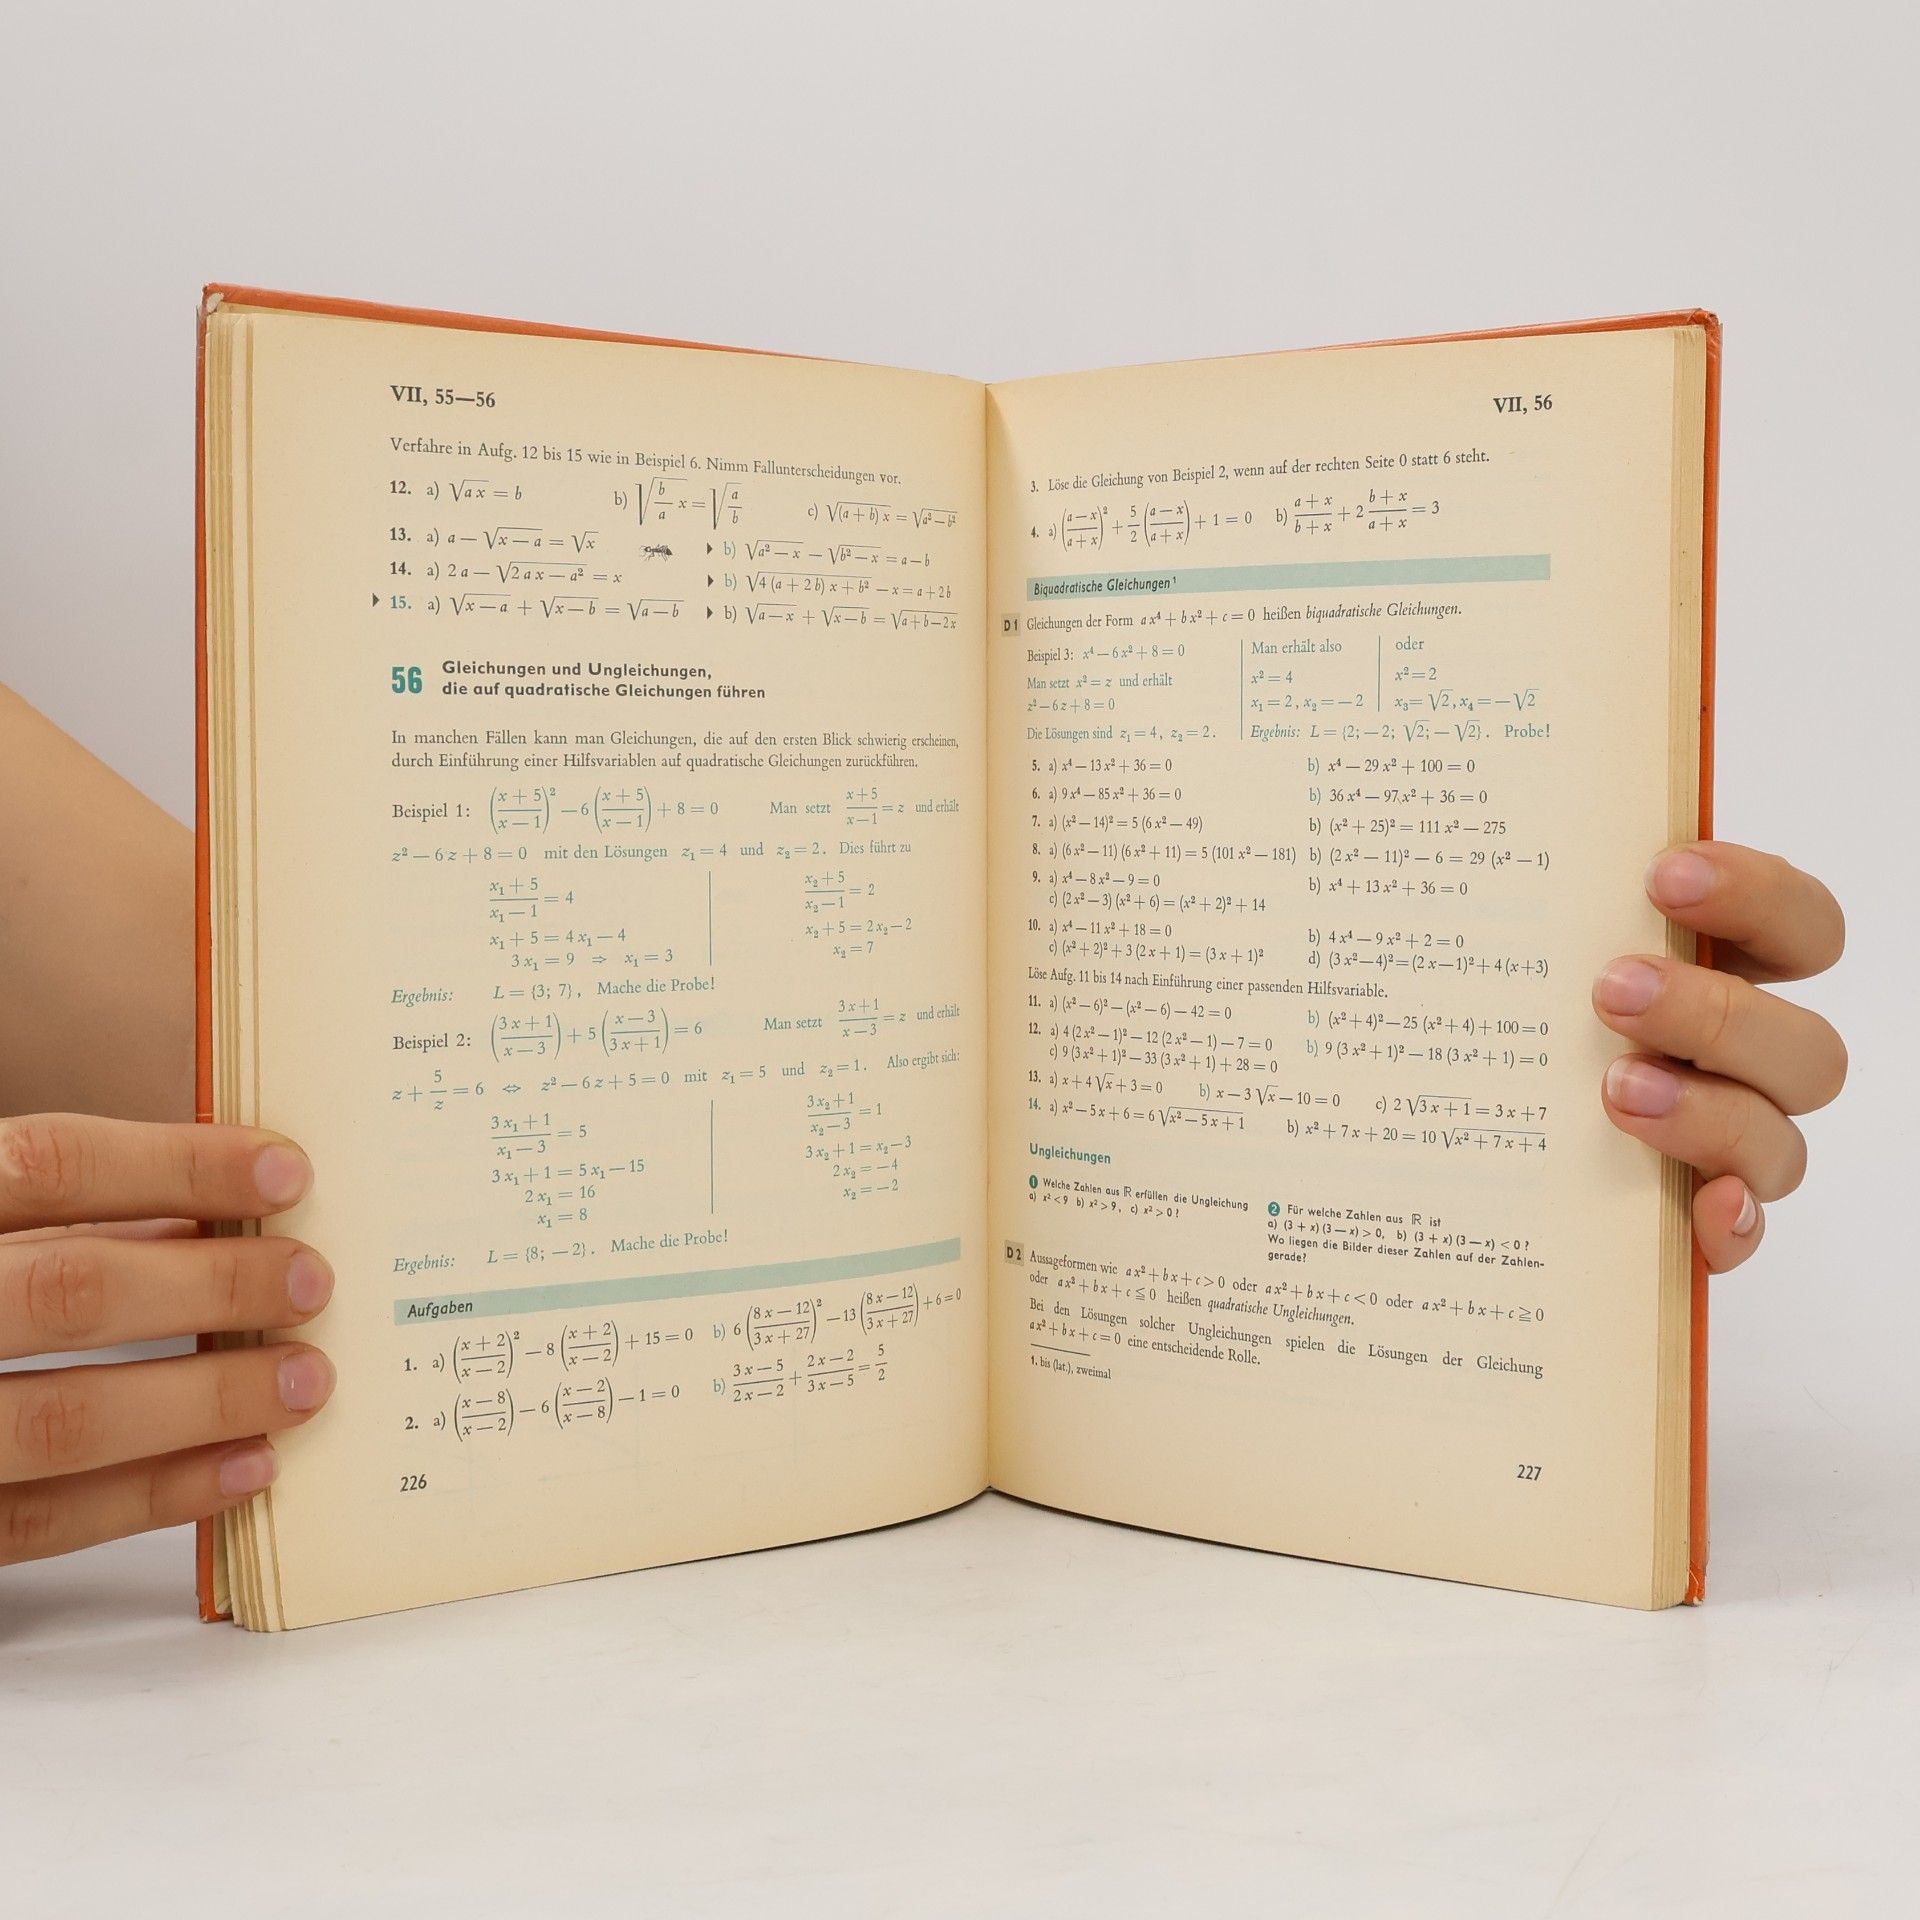 VII, 55—56
Verfahre in Aufg. 12 bis 15 wie in Beispiel 6. Nimm Fallunterscheidungen vor.
12. a) √(ax) = b b) √(b/a x) = √(a/b) c) √((a + b) x) = √(a² — b²)
13. a) a — √(x — a) = √x ▶ b) √(a² — x) — √(b² — x) = a — b
14. a) 2a — √(2ax — a²) = x ▶ b) √(4 (a + 2b) x + b²) — x = a + 2b
▶ 15. a) √(x — a) + √(x — b) = √(a — b) ▶ b) √(a — x) + √(x — b) = √(a + b — 2x)
56 Gleichungen und Ungleichungen,
die auf quadratische Gleichungen führen
In manchen Fällen kann man Gleichungen, die auf den ersten Blick schwierig erscheinen,
durch Einführung einer Hilfsvariablen auf quadratische Gleichungen zurückführen.
Beispiel 1: ((x + 5)/(x — 1))² — 6 ((x + 5)/(x — 1)) + 8 = 0 Man setzt (x + 5)/(x — 1) = z und erhält
z² — 6z + 8 = 0 mit den Lösungen z₁ = 4 und z₂ = 2. Dies führt zu
(x₁ + 5)/(x₁ — 1) = 4 (x₂ + 5)/(x₂ — 1) = 2
x₁ + 5 = 4x₁ — 4 x₂ + 5 = 2x₂ — 2
3x₁ = 9 ⇒ x₁ = 3 x₂ = 7
Ergebnis: L = {3; 7}, Mache die Probe!
Beispiel 2: ((3x + 1)/(x — 3)) + 5 ((x — 3)/(3x + 1)) = 6 Man setzt (3x + 1)/(x — 3) = z und erhält
z + 5/z = 6 ⇔ z² — 6z + 5 = 0 mit z₁ = 5 und z₂ = 1. Also ergibt sich:
(3x₁ + 1)/(x₁ — 3) = 5 (3x₂ + 1)/(x₂ — 3) = 1
3x₁ + 1 = 5x₁ — 15 3x₂ + 1 = x₂ — 3
2x₁ = 16 2x₂ = — 4
x₁ = 8 x₂ = — 2
Ergebnis: L = {8; — 2}. Mache die Probe!
Aufgaben
1. a) ((x + 2)/(x — 2))² — 8 ((x + 2)/(x — 2)) + 15 = 0 b) 6 ((8x — 12)/(3x + 27))² — 13 ((8x — 12)/(3x + 27)) + 6 = 0
2. a) ((x — 8)/(x — 2)) — 6 ((x — 2)/(x — 8)) — 1 = 0 b) (3x — 5)/(2x — 2) + (2x — 2)/(3x — 5) = 5/2
226
VII, 56
3. Löse die Gleichung von Beispiel 2, wenn auf der rechten Seite 0 statt 6 steht.
4. a) ((a — x)/(a + x))² + 5/2 ((a — x)/(a + x)) + 1 = 0 b) (a + x)/(b + x) + 2 (b + x)/(a + x) = 3
Biquadratische Gleichungen¹
D 1 Gleichungen der Form ax⁴ + bx² + c = 0 heißen biquadratische Gleichungen.
Beispiel 3: x⁴ — 6x² + 8 = 0 Man erhält also oder
Man setzt x² = z und erhält x² = 4 x² = 2
z² — 6z + 8 = 0 x₁ = 2, x₂ = — 2 x₃ = √2, x₄ = — √2
Die Lösungen sind z₁ = 4, z₂ = 2. Ergebnis: L = {2; — 2; √2; — √2}. Probe!
5. a) x⁴ — 13x² + 36 = 0 b) x⁴ — 29x² + 100 = 0
6. a) 9x⁴ — 85x² + 36 = 0 b) 36x⁴ — 97x² + 36 = 0
7. a) (x² — 14)² = 5 (6x² — 49) b) (x² + 25)² = 111x² — 275
8. a) (6x² — 11) (6x² + 11) = 5 (101x² — 181) b) (2x² — 11)² — 6 = 29 (x² — 1)
9. a) x⁴ — 8x² — 9 = 0 b) x⁴ + 13x² + 36 = 0
c) (2x² — 3) (x² + 6) = (x² + 2)² + 14
10. a) x⁴ — 11x² + 18 = 0 b) 4x⁴ — 9x² + 2 = 0
c) (x² + 2)² + 3 (2x + 1) = (3x + 1)² d) (3x² — 4)² = (2x — 1)² + 4 (x + 3)
Löse Aufg. 11 bis 14 nach Einführung einer passenden Hilfsvariable.
11. a) (x² — 6)² — (x² — 6) — 42 = 0 b) (x² + 4)² — 25 (x² + 4) + 100 = 0
12. a) 4 (2x² — 1)² — 12 (2x² — 1) — 7 = 0 b) 9 (3x² + 1)² — 18 (3x² + 1) = 0
c) 9 (3x² + 1)² — 33 (3x² + 1) + 28 = 0
13. a) x + 4√x + 3 = 0 b) x — 3√x — 10 = 0 c) 2√(3x + 1) = 3x + 7
14. a) x² — 5x + 6 = 6√(x² — 5x + 1) b) x² + 7x + 20 = 10√(x² + 7x + 4)
Ungleichungen
1 Welche Zahlen aus ℝ erfüllen die Ungleichung
a) x² < 9 b) x² > 9, c) x² > 0?
2 Für welche Zahlen aus ℝ ist
a) (3 + x) (3 — x) > 0, b) (3 + x) (3 — x) < 0?
Wo liegen die Bilder dieser Zahlen auf der Zahlen-
gerade?
D 2 Aussageformen wie ax² + bx + c > 0 oder ax² + bx + c < 0 oder ax² + bx + c ≧ 0
oder ax² + bx + c ≦ 0 heißen quadratische Ungleichungen.
Bei den Lösungen solcher Ungleichungen spielen die Lösungen der Gleichung
ax² + bx + c = 0 eine entscheidende Rolle.
1. bis (lat.), zweimal
227